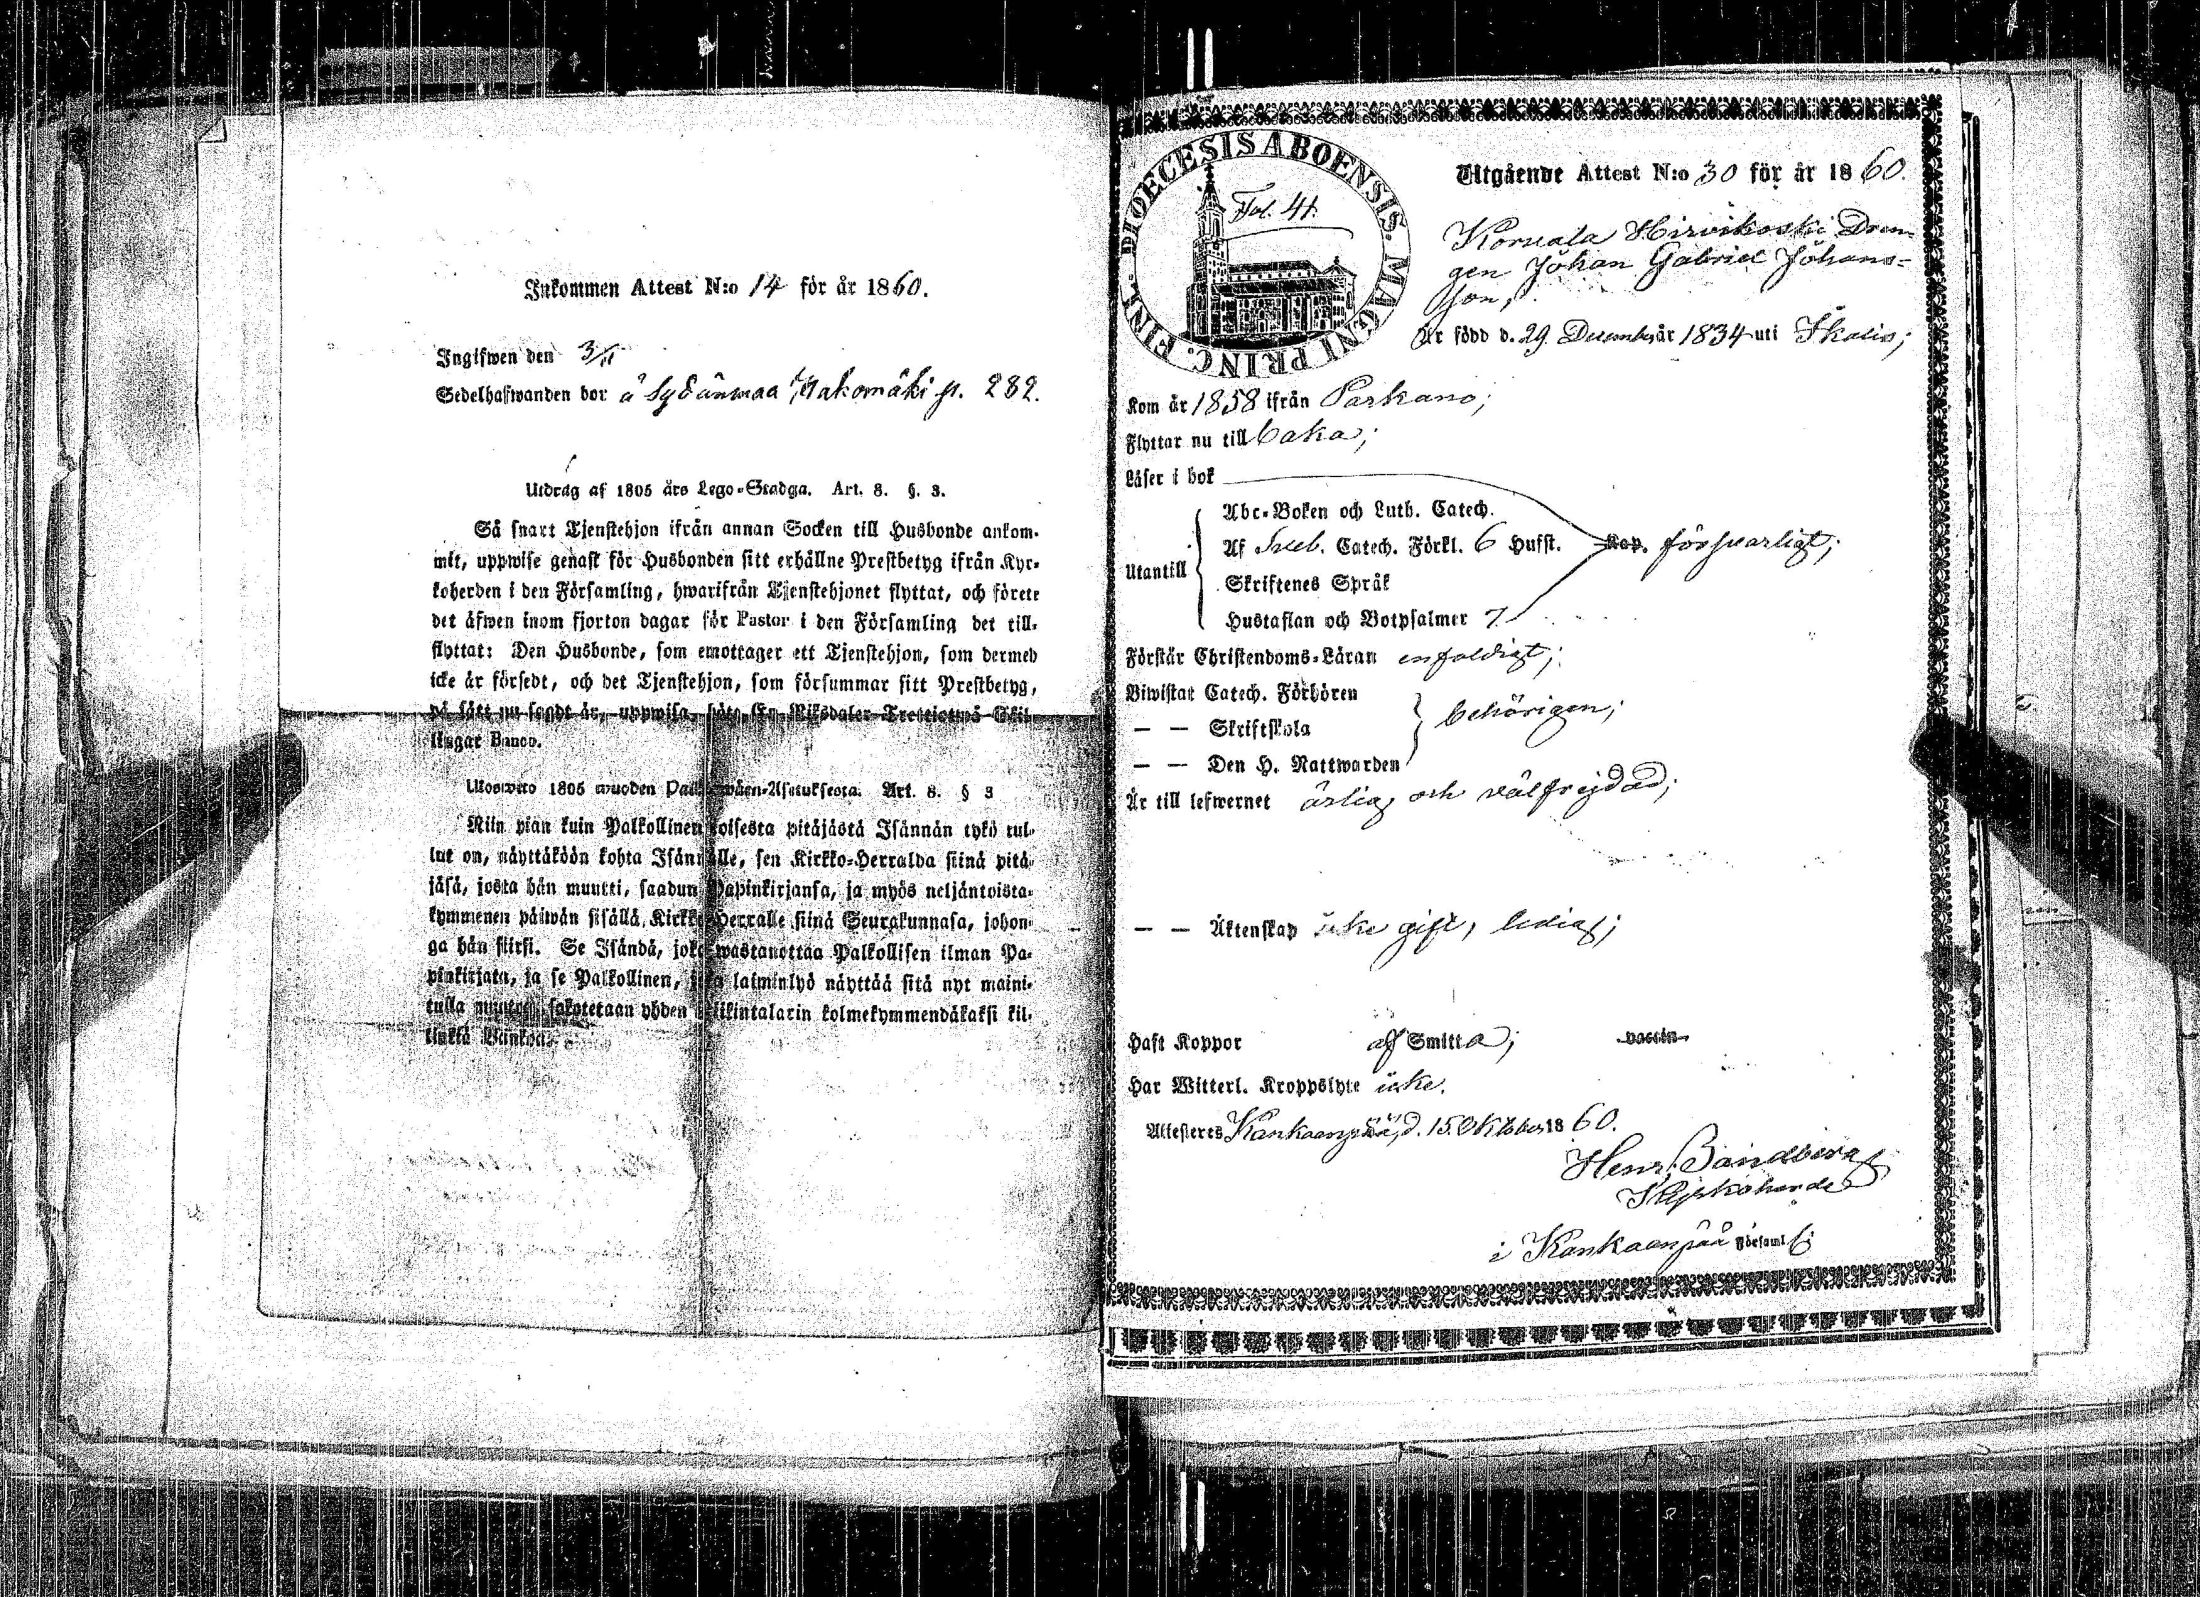 Inkommen Attest N:o 14 för år 1860.
Ingifwen den 3/11
Sedelhafwanden bor å Sydänmaa p. 282.
Utdrag af 1805 års Lego-Stadga. Art. 8. §. 3.
Så snart Tjenstehjon ifrån annan Socken till Husbonde ankom-
mit, uppwise genast för Husbonden sitt erhållne Prestbetyg ifrån Kyr-
koherden i den Församling, hwarifrån Tjenstehjonet flyttat, och förete
det äfwen inom fjorton dagar för Pastor i den Församling det till-
flyttat: Den Husbonde, som emottager ett Tjenstehjon, som dermed
icke är försedt, och det Tjenstehjon, som försummar sitt Prestbetyg,
på sätt nu sagdt är, uppwisa, böte En Riksdaler Trettiotwå Skil-
lingar Banco.
Ulosweto 1805 wuoden Asetuksesta. Art. 8. § 3
Niin pian kuin Palkollinen toisesta pitäjästä Isännän tykö tul-
lut on, näyttäköön kohta Isännälle, sen Kirkko-Herralda siinä pitä-
jäsä, josta hän muutti, saadun Papinkirjansa, ja myös neljäntoista-
kymmenen päiwän sisällä Kirkko-Herralle siinä Seurakunnasa, johon-
ga hän siirsi. Se Isändä, joka wastanottaa Palkollisen ilman Pa-
pinkirjata, ja se Palkollinen, joka laiminlyö näyttää sitä nyt maini-
tulla muutoin, sakotetaan yhden Rikintalarin kolmekymmendäkaksi kil-
linkiä Bankoa.
DIOECESIS ABOENSIS. MAGNI PRINC. FINL.
Fol. 41.
Utgående Attest N:o 30 för år 1860.
Korvala Hirvikoski Drän-
gen Johan Gabriel Johans-
son,
Är född d. 29 December år 1834 uti Ikalis;
Kom år 1858 ifrån Parkano;
Flyttar nu till baka;
Läser i bok
Abc-Boken och Luth. Catech.
Af Sveb. Catech. Förkl. 6 Hufst. Kap. försvarligt;
Utantill
Skriftenes Språk
Hustaflan och Botpsalmer 7
Förstår Christendoms-Läran enfaldigt;
Biwistat Catech. Förhören
— — Skriftskola behörigen;
— — Den H. Nattwarden
Är till lefwernet ärlig och välfrejdad;
— — Äktenskap icke gift, ledig;
Haft Koppor af Smitta; vaccin
Har Witterl. Kroppslyte icke.
Attesteres Kankaanpää, d. 15 Oktober 1860.
Henr. Sandberg
Kyrkoherde
i Kankaanpää Församl.